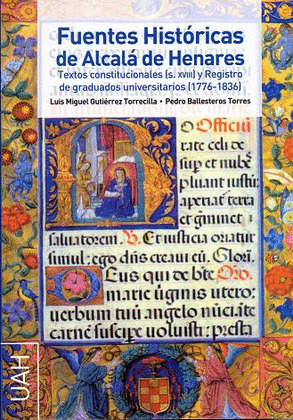 Fuentes Históricas
de Alcalá de Henares
Textos constitucionales (s. XVIII) y Registro
de graduados universitarios (1776-1836)
Luis Miguel Gutiérrez Torrecilla • Pedro Ballesteros Torres
O Offici
rate celi de
sup et nubes
pluant iustū:
aperiat terra
et gminet
saluatorem. V. Et iusticia oriatur
simul: ego dñs creaui eū. Glori.
Deus qui de bte Oro.
marie uirginis utero:
uerbum tuū angelo nūciāte
carnē suscipe uoluisti: presta
UAH